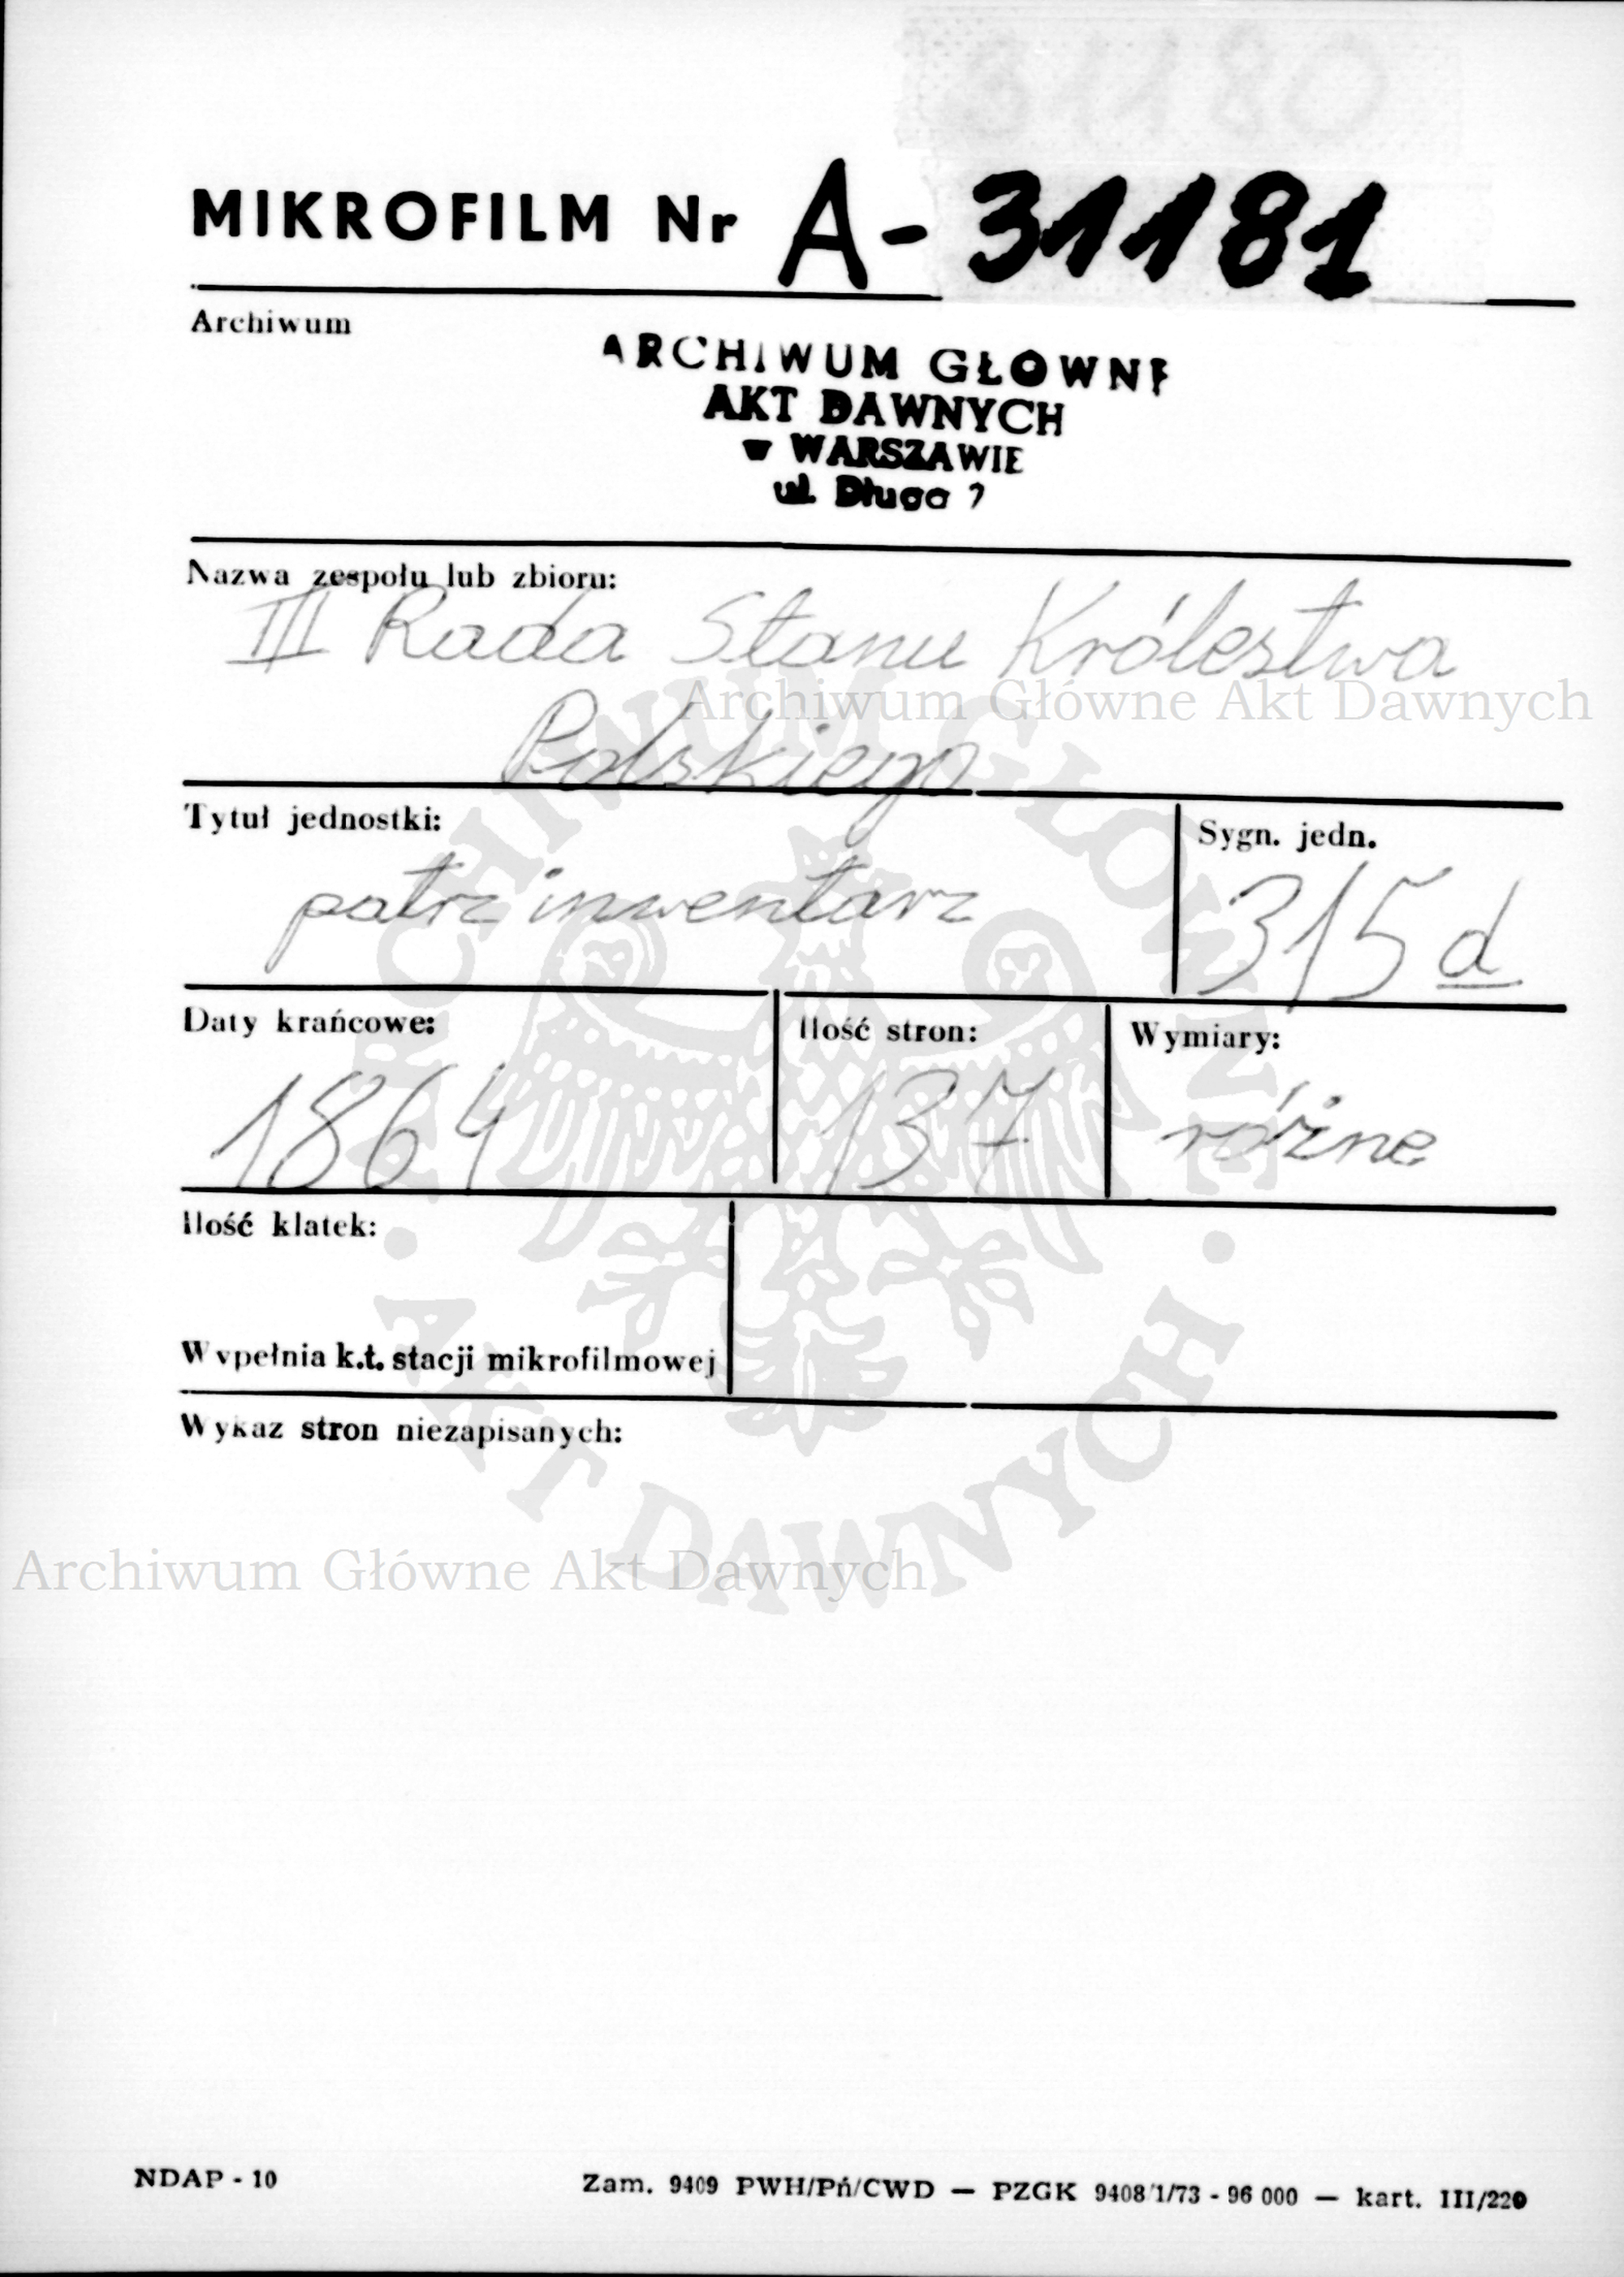 31180
MIKROFILM Nr A-31181
Archiwum
ARCHIWUM GŁOWNE
AKT DAWNYCH
w WARSZAWIE
ul. Długa 7
Nazwa zespołu lub zbioru:
III Rada Stanu Królestwa
Archiwum Główne Akt Dawnych
Polskiego
Tytuł jednostki:
Sygn. jedn.
patrz inwentarz
315 d
Daty krańcowe:
Ilość stron:
Wymiary:
1864
137
różne
Ilość klatek:
Wypełnia k.t. stacji mikrofilmowej
Wykaz stron niezapisanych:
ARCHIWUM GŁÓWNE
AKT DAWNYCH
Archiwum Główne Akt Dawnych
NDAP - 10
Zam. 9409 PWH/Pń/CWD — PZGK 9408/1/73 - 96 000 — kart. III/220